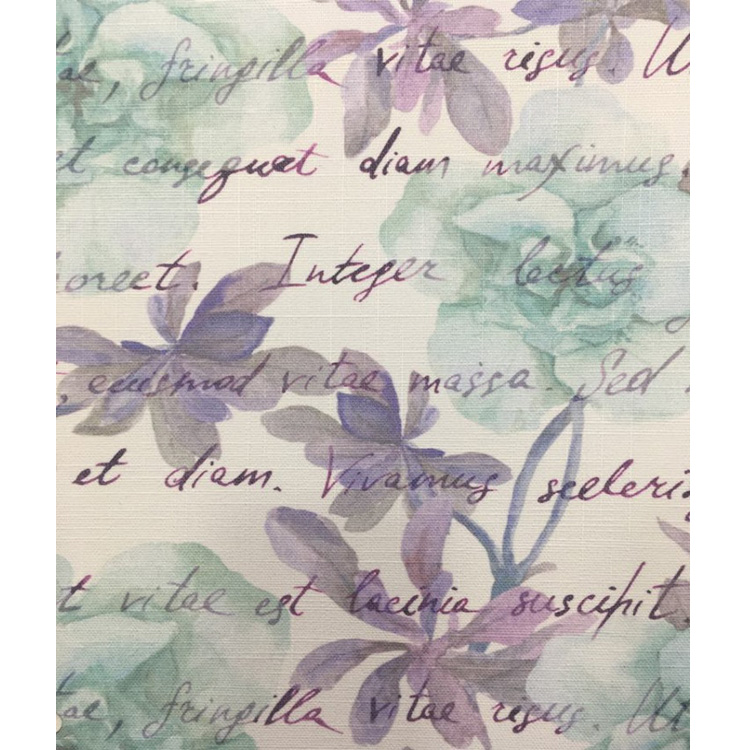 ae, fringilla vitae risus. U
et consequat diam maximus.
oreet. Integer lectus
, euismod vitae massa. Sed
et diam. Vivamus sceleris
t vitae est lacinia suscipit.
ae, fringilla vitae risus. U